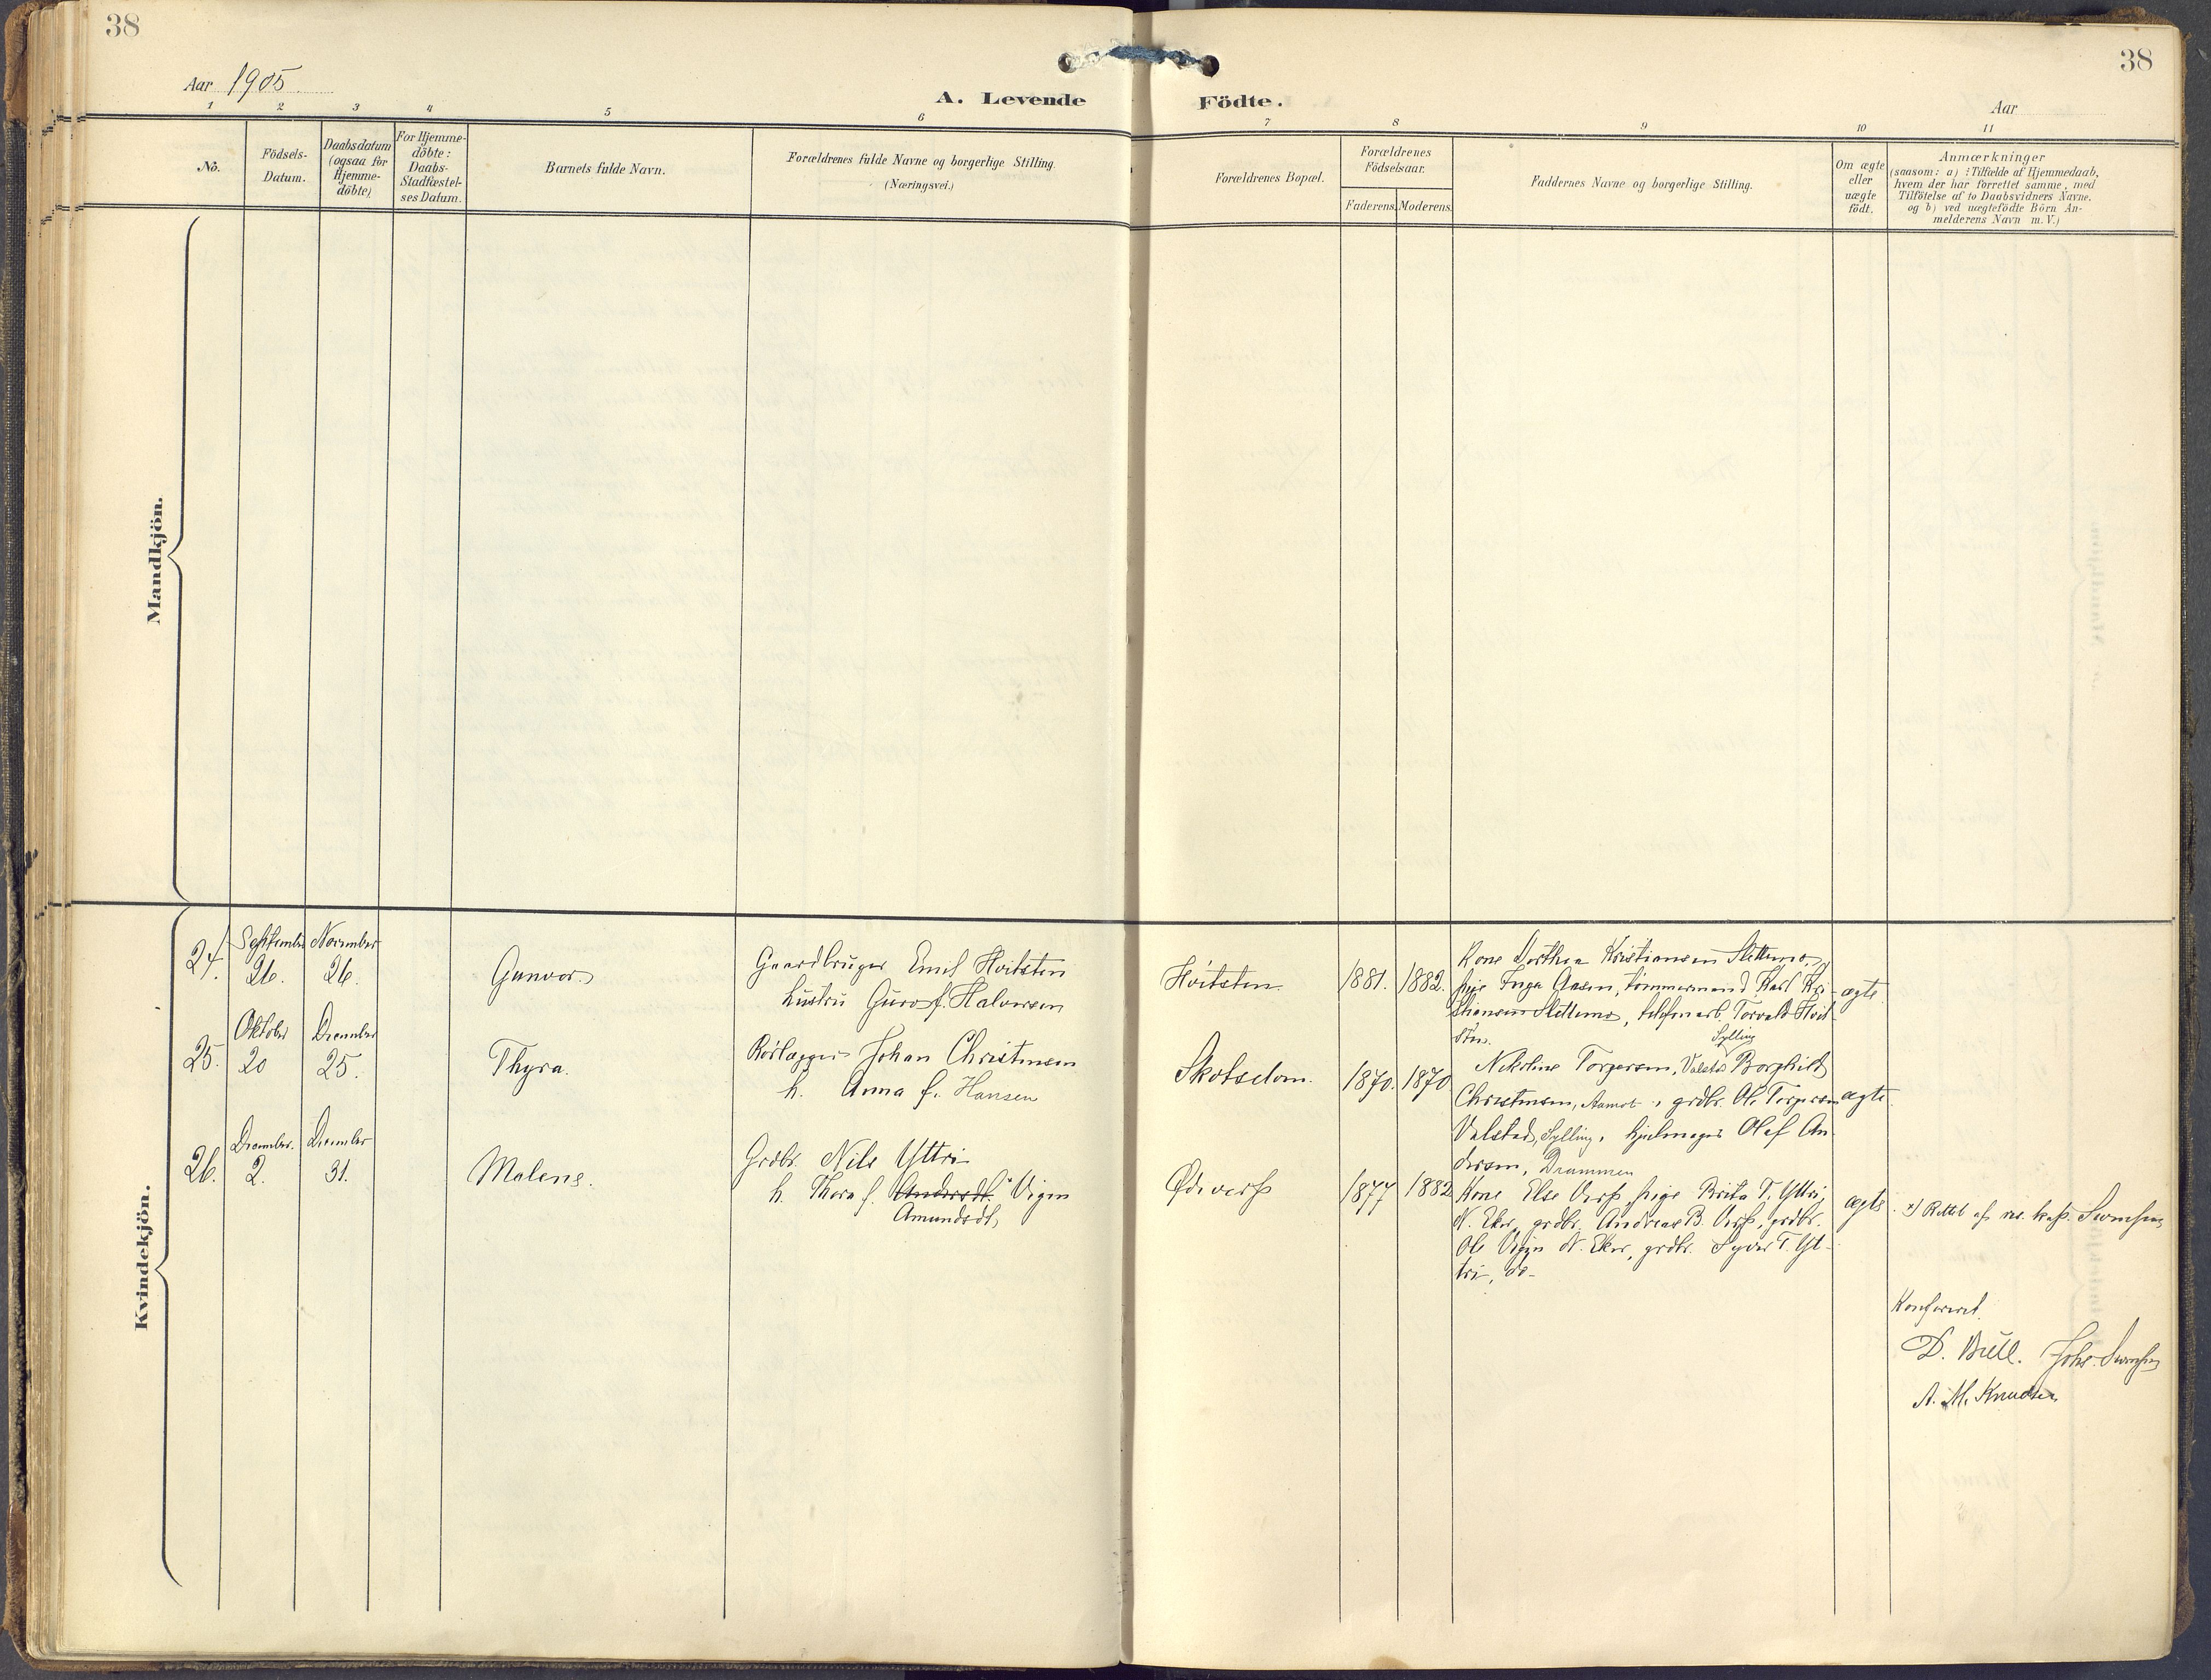 38
38
Aar 1905.
A. Levende Födte.
Aar
1 2 3 4 5 6 7 8 9 10 11
No.
Födsels-
Datum.
Daabsdatum
(ogsaa for
Hjemme-
döbte)
For Hjemme-
döbte:
Daabs-
Stadfæstel-
ses Datum.
Barnets fulde Navn.
Forældrenes fulde Navne og borgerlige Stilling.
(Næringsvei.)
Forældrenes Bopæl.
Forældrenes
Födselsaar.
Faderens. Moderens.
Faddernes Navne og borgerlige Stilling.
Om ægte
eller
uægte
födt.
Anmærkninger
(saasom: a) i Tilfælde af Hjemmedaab,
hvem der har forrettet samme, med
Tilföielse af to Daabsvidners Navne.
og b) ved uægtefödte Börn An-
melderens Navn m. V.)
Mandkjön.
Kvindekjön.
24.
September
26.
November
26.
Gunvor.
Gaardbruger Emil Hvitsten
hustru Guro f. Halvorsen
Hvitsten.
1881. 1882.
Kone Dorthea Kristiansen Slettemo,
pige Inga Aasen, tømmermand Karl Kri-
stiansen Slettemo, telefonarb. Torvald Hvit-
sten.
ægte.
25.
Oktober
20
December
25.
Thyra.
Rørlægger Johan Christensen
h. Anna f. Hansen
Skotselom.
1870. 1870
Sylling
Nikoline Torgersen, Valstad Borghild
Christensen, Aamot, grdbr. Ole Torgersen
Valstad, Sylling, hjulmager Olaf An-
dersen, Drammen
ægte.
26.
December.
2.
December
31.
Malene.
Grdbr. Nils Yttri
h. Thora f. Andersdt. Vigen
Amundsdt.
Ødeverp
1877 1882
Kone Else Verp, pige Brita T. Yttri,
N. Eker, grdbr. Andreas B. Verp, grdbr.
Ole Vigen N. Eker, grdbr. Syver T. Yt-
tri, do-
ægte.
x) Rettet af res. kap. Svensen
Konfereret.
D. Bull. Johs. Svensen
A. M. Knudsen